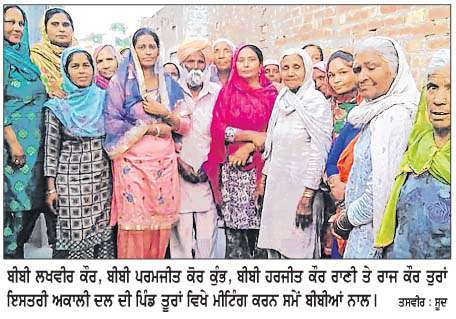 ਬੀਬੀ ਲਖਵੀਰ ਕੌਰ, ਬੀਬੀ ਪਰਮਜੀਤ ਕੋਰ ਕੁੰਭ, ਬੀਬੀ ਹਰਜੀਤ ਕੌਰ ਰਾਣੀ ਤੇ ਰਾਜ ਕੌਰ ਤੂਰਾਂ
ਇਸਤਰੀ ਅਕਾਲੀ ਦਲ ਦੀ ਪਿੰਡ ਤੂਰਾਂ ਵਿਖੇ ਮੀਟਿੰਗ ਕਰਨ ਸਮੇਂ ਬੀਬੀਆਂ ਨਾਲ। ਤਸਵੀਰ : ਸੂਦ